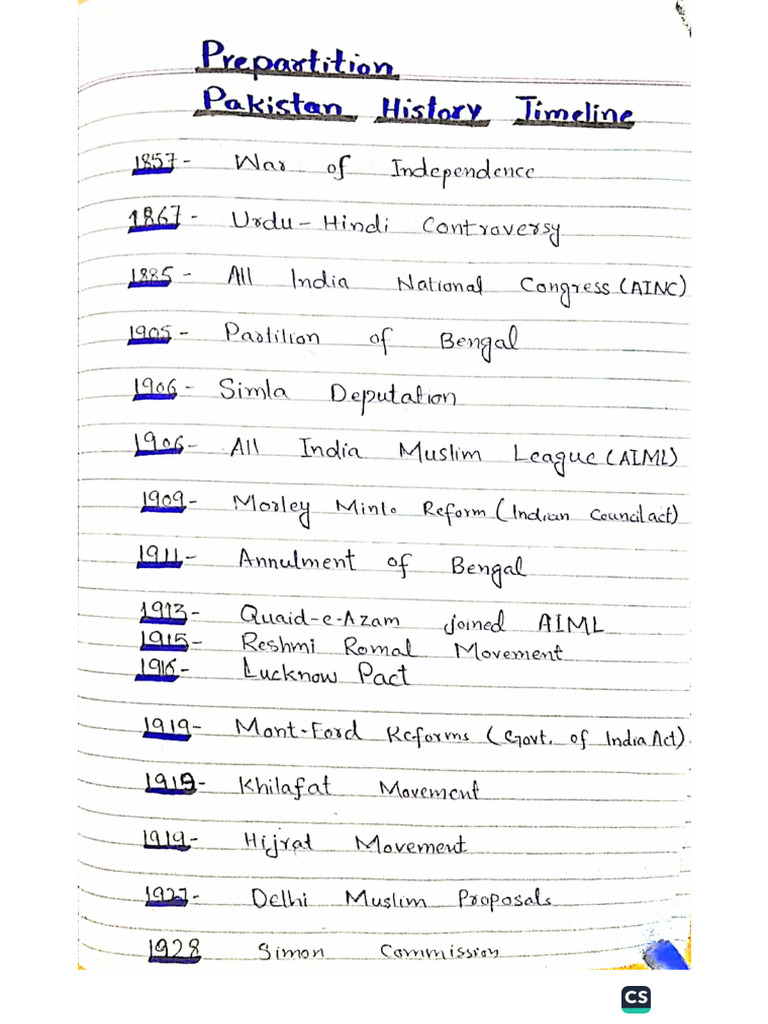 Prepartition
Pakistan History Timeline
1857- War of Independence
1867- Urdu-Hindi Controversy
1885- All India National Congress (AINC)
1905- Partition of Bengal
1906- Simla Deputation
1906- All India Muslim League (AIML)
1909- Morley Minto Reform (Indian Council act)
1911- Annulment of Bengal
1913- Quaid-e-Azam joined AIML
1915- Reshmi Romal Movement
1916- Lucknow Pact
1919- Mont-Ford Reforms (Govt. of India Act)
1919- Khilafat Movement
1919- Hijrat Movement
1927- Delhi Muslim Proposals
1928 Simon Commission
CS